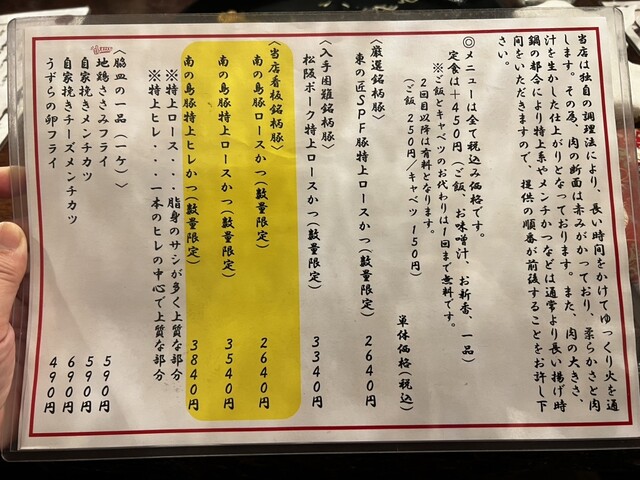 当店は独自の調理法により、長い時間をかけてゆっくり火を通
します。その為、肉の断面は赤みがかっており、柔らかさと肉
汁を生かした仕上がりとなっております。また、肉の大きさ、
鍋の都合により特上系やメンチかつなどは通常より長い揚げ時
間をいただきますので、提供の順番が前後することをお許し下
さい。
◎メニューは全て税込み価格です。
定食は＋450円（ご飯、お味噌汁、お新香、一品）
※ご飯とキャベツのお代わりは1回まで無料です。
2回目以降は有料となります。
（ご飯 250円／キャベツ 150円）
単体価格（税込）
〈厳選銘柄豚〉
東の匠SPF豚特上ロースかつ（数量限定） 2640円
〈入手困難銘柄豚〉
松阪ポーク特上ロースかつ（数量限定） 3340円
〈当店看板銘柄豚〉
南の島豚ロースかつ（数量限定） 2640円
南の島豚特上ロースかつ（数量限定） 3540円
南の島豚特上ヒレかつ（数量限定） 3840円
※特上ロース・・脂身のサシが多く上質な部分
※特上ヒレ・・一本のヒレの中心で上質な部分
〈脇皿の一品（一ケ）〉
地鶏ささみフライ 590円
自家挽きメンチカツ 590円
自家挽きチーズメンチカツ 690円
うずらの卵フライ 490円